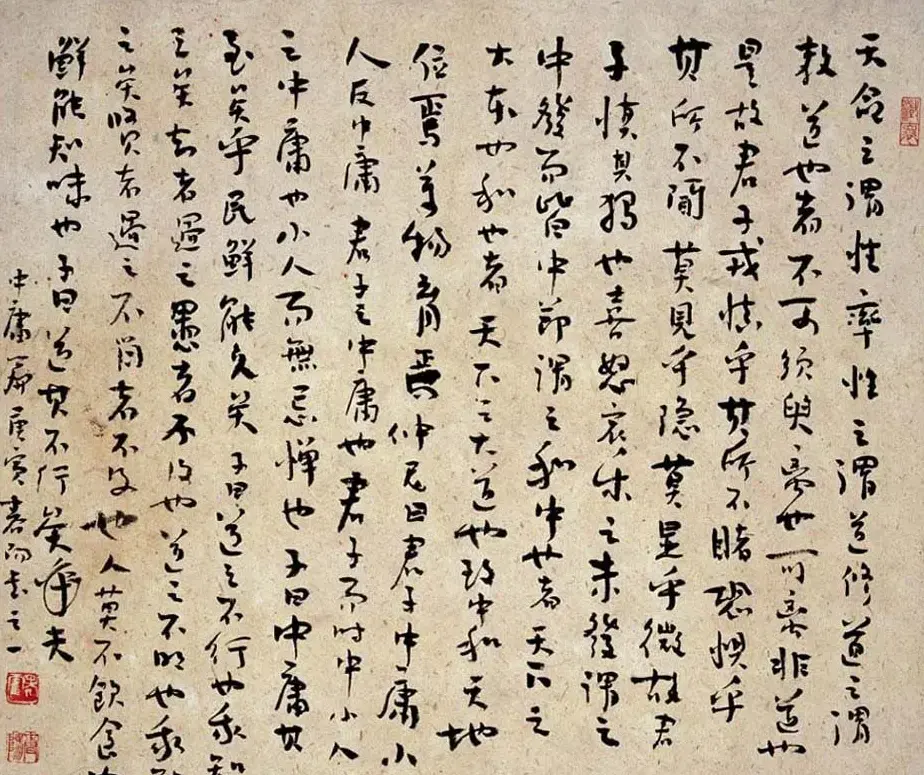 天命之谓性率性之谓道修道之谓
教道也者不可须臾离也可离非道也
是故君子戒慎乎其所不睹恐惧乎
其所不闻莫见乎隐莫显乎微故君
子慎其独也喜怒哀乐之未发谓之
中發而皆中节谓之和中也者天下之
大本也和也者天下之大道也致中和天地
位焉万物育焉仲尼曰君子中庸小
人反中庸君子之中庸也君子而时中小人
之中庸也小人而無忌惮也子曰中庸其
至矣乎民鲜能久矣子曰道之不行也我知
之矣知者過之愚者不及也道之不明也我知
之矣贤者過之不肖者不及也人莫不飲食
鲜能知味也子曰道其不行矣夫
中庸 書